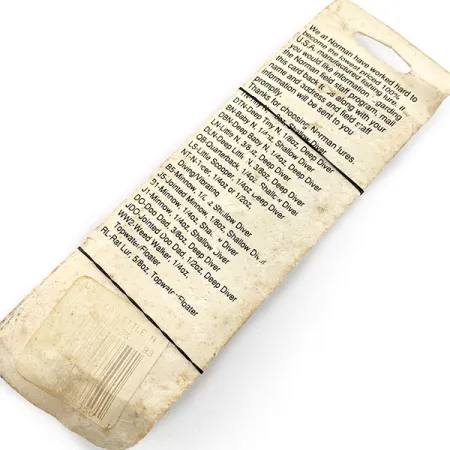 We at Norman have worked hard to
become the lowest priced 100%
U.S.A. manufactured fishing lure. If
you would like information regarding
the Norman field staff program, mail
this card back to us along with your
name and address and field staff
information will be sent to you
promptly.
Thanks for choosing Norman lures.
Shallow Diver
DTN-Deep Tiny N, 1/8oz, Deep Diver
BN-Baby N, 1/4oz, Shallow Diver
DBN-Deep Baby N, 1/4oz, Deep Diver
LN-Little N, 3/8oz, Deep Diver
DLN-Deep Little N, 3/8oz, Deep Diver
QB-Quarterback, 1/4oz, Shallow Diver
LS-Little Scooper, 1/4oz, Deep Diver
NT-N-Ticer, 1/4oz or 1/2oz,
Diving/Vibrating
BS-Minnow, Shallow Diver
JS-Jointed Minnow, 1/8oz, Shallow Diver
B1-Minnow, 1/4oz, Shallow Diver
J1-Minnow, 1/4oz, Shallow Diver
DD-Doo Dad, 3/8oz, Deep Diver
JDD-Jointed Doo Dad, 1/2oz, Deep Diver
WW2-Weed Walker, 1/4oz,
Topwater Floater
RL-Rat Lur, 5/8oz, Topwater Floater
LITTLE N